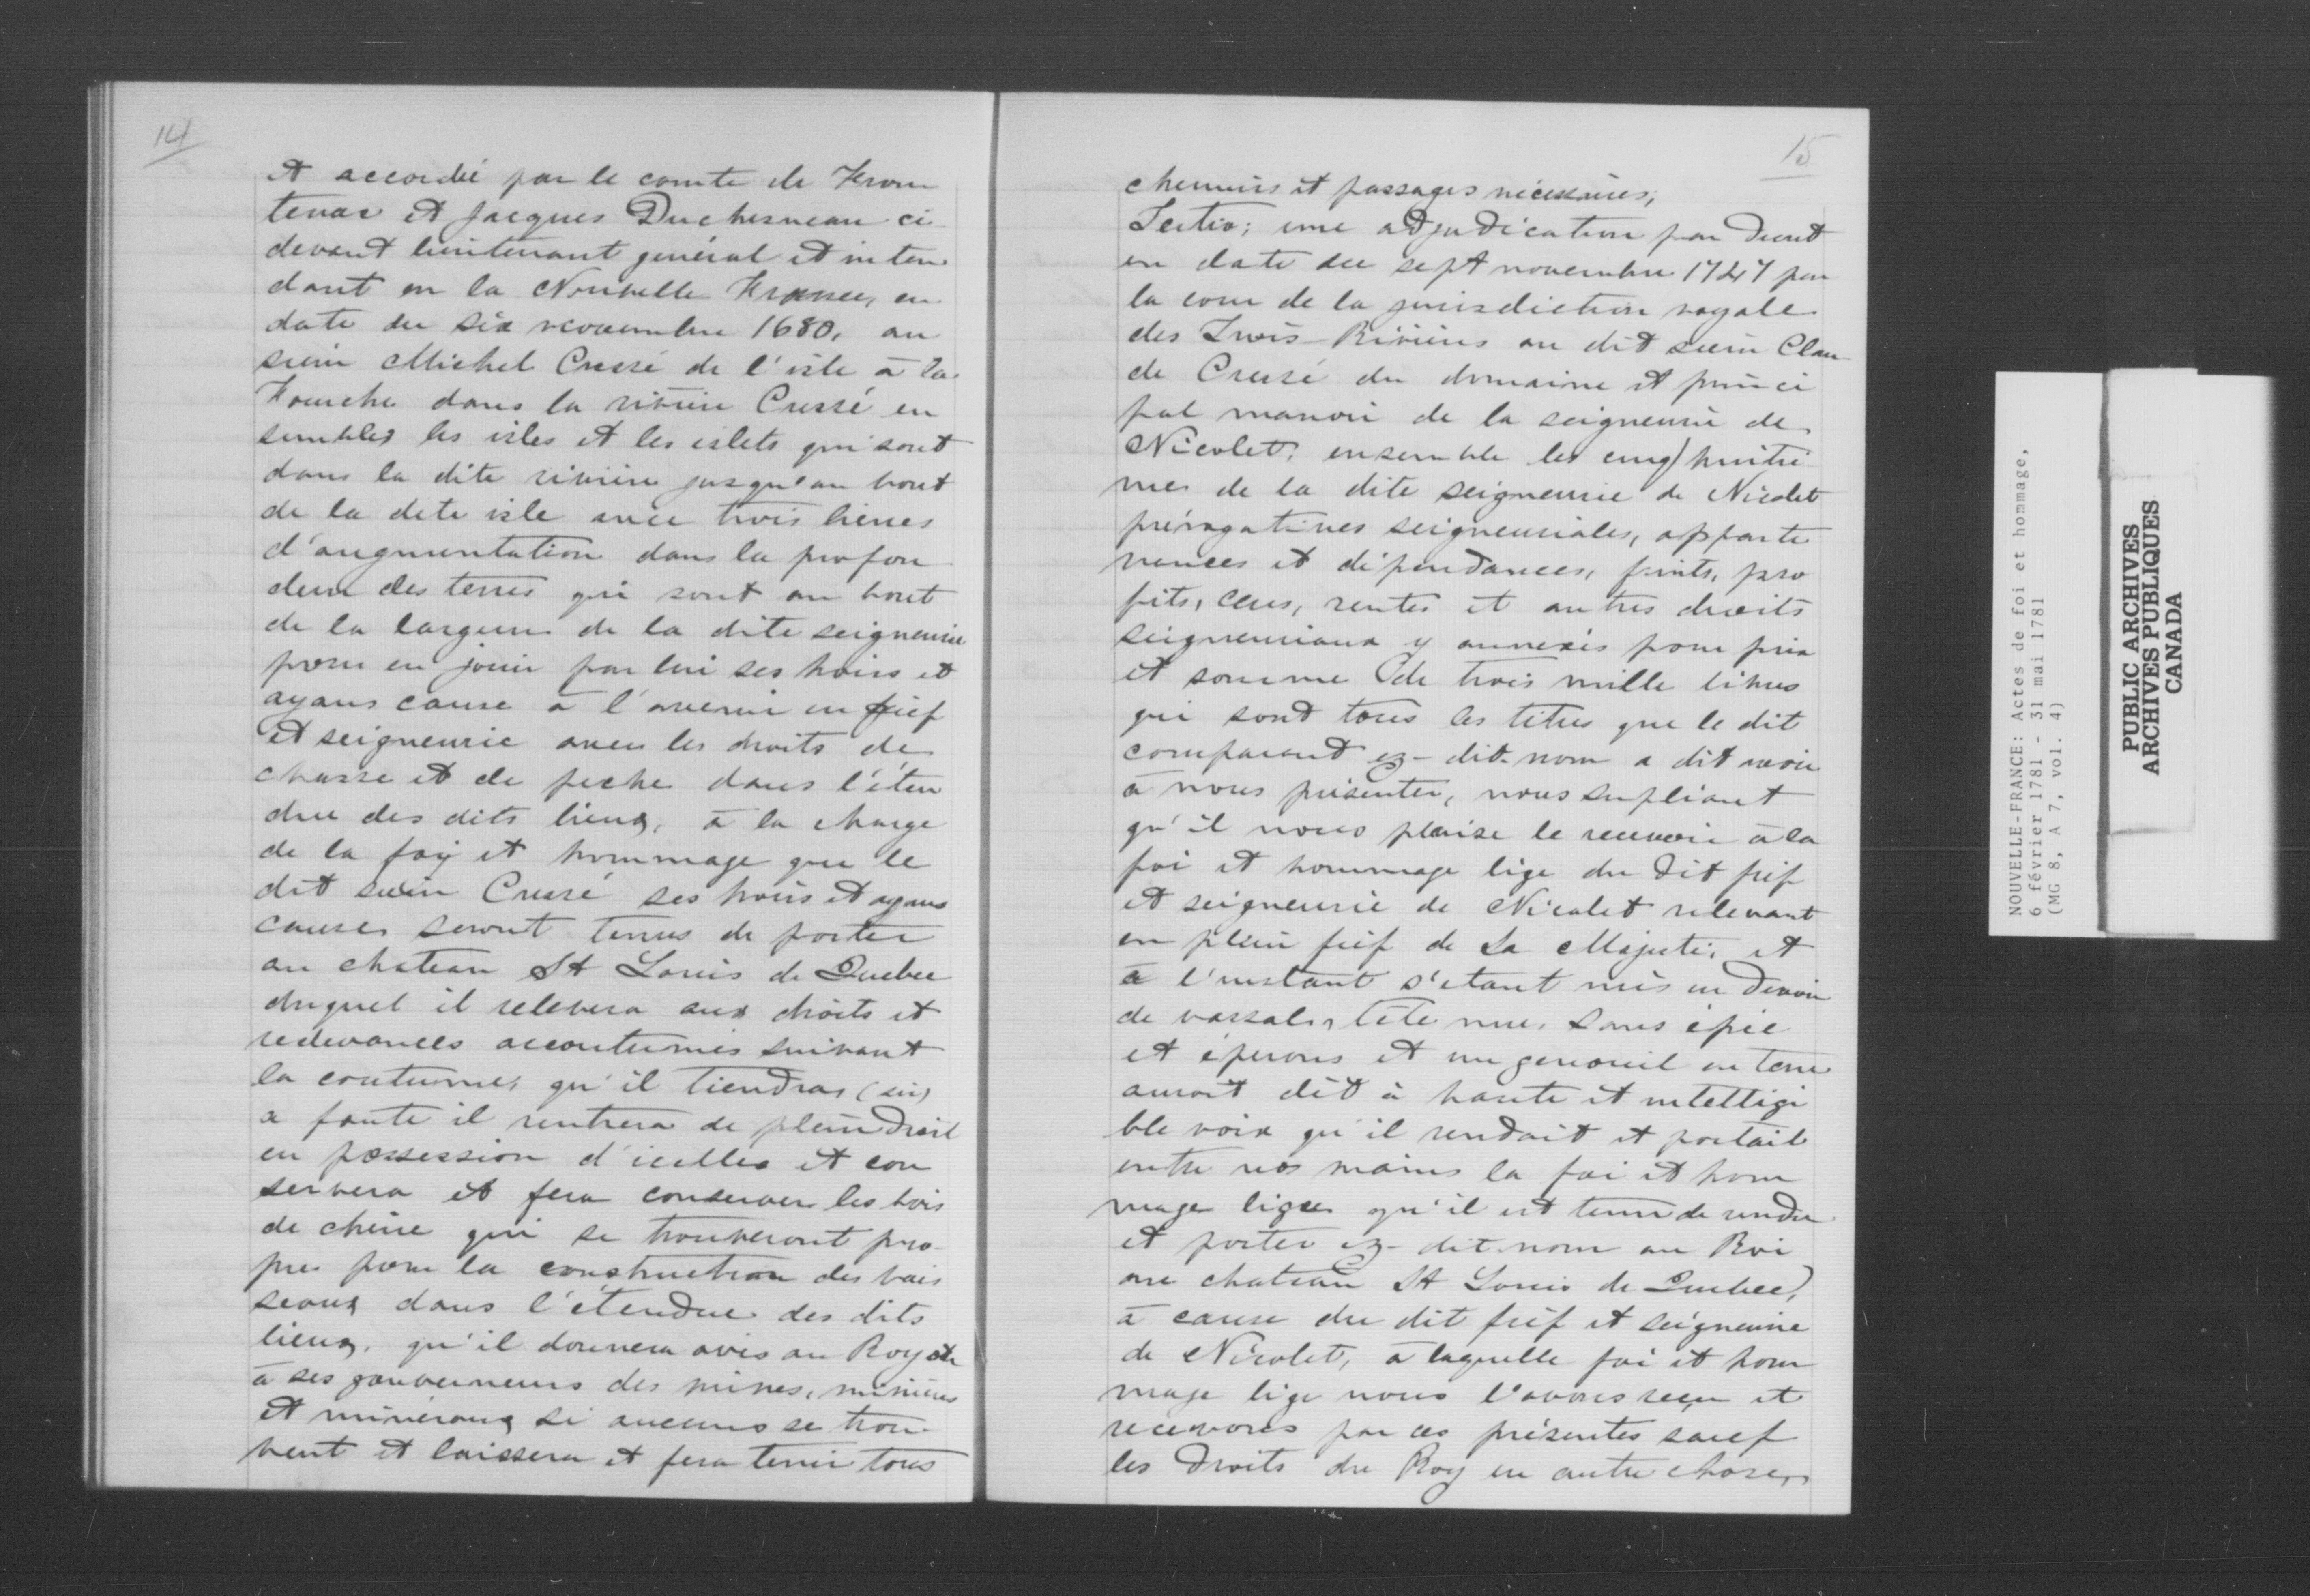 14
et accordé par le comte de Fron
tenac et Jacques Duchesneau ci
devant lieutenant général et inten
dant en la Nouvelle France, en
date du six novembre 1680, au
sieur Michel Cressé de l'isle à la
Fourche dans la rivière Cressé en
sembles les isles et les islets qui sont
dans la dite rivière jusqu'au bout
de la dete isle avec trois lieues
d'augmentation dans la profon
deur des terres qui sont au bout
de la largeur de la dite seigneurie
pour en jouir par lui ses hoirs et
ayans cause à l'avenir en fief
et seigneurie avec les droits de
chasse et de peche dans l'éten
due des dits lieux, à la charge
de la foy et hommage que le
dit sieur Cressé ses hoirs et ayans
causes seront tenus de porter
au chateau St Louis de Quebec
duquel il relevera aux droits et
redevances accoutumés suivant
la coutume, qu'il tiendras (sic)
a faute il rentrera de plein droit
en possession d'icelles et con
servera et fera conserver les bois
de chêne qui se trouveront pro-
pres pour la construction des vais
seaux dans l'étendue des dits
lieux, qu'il donnera avis au Roy et
à ses gouverneurs des mines, minières
et minéraux si aucuns se trou-
vent et laissera et fera tenir tous
15
chemins et passages nécessaires;
Tertio; une adjudication par decret
en date du sept novembre 1747 par
la cour de la jurisdiction royale
des Trois-Rivières au dit sieur Clau-
de Cressé du domaine et princi
pal manoir de la seigneurie de
Nicolet, ensemble les cinq huitiè
mes de la dite seigneurie de Nicolet
prérogatives seigneuriales, apparte
nances et dépendances, fruits, pro
fits, cens, rentes et autres droits
seigneuriaux y annexés pour prix
et somme de trois mille livres
qui sont tous les titres que le dit
comparant ez-dit-nom a dit avoir
à nous présenter, nous supliant
qu'il nous plaise le recevoir à la
foi et hommage lige du dit fief
et seigneurie de Nicolet relevant
en plein fief de Sa Majesté, et
à l'instant s'etant mis en devoir
de vassal, tete nue, sans épée
et éperons et un genouil en terre
auroit dit à haute et intelligi
ble voix qu'il rendait et portait
entre nos mains la foi et hom
mage liges qu'il est tenu de rendre
et porter ez-dit-nom au Roi
au chateau St Louis de Quebec,
à cause du dit fief et seigneurie
de Nicolet, à laquelle foi et hom
mage lige nous l'avons reçu et
recevons par ces présentes sauf
les droits du Roy en autre choses
NOUVELLE-FRANCE: Actes de foi et hommage,
6 février 1781 - 31 mai 1781
(MG 8, A 7, vol. 4)
PUBLIC ARCHIVES
ARCHIVES PUBLIQUES
CANADA